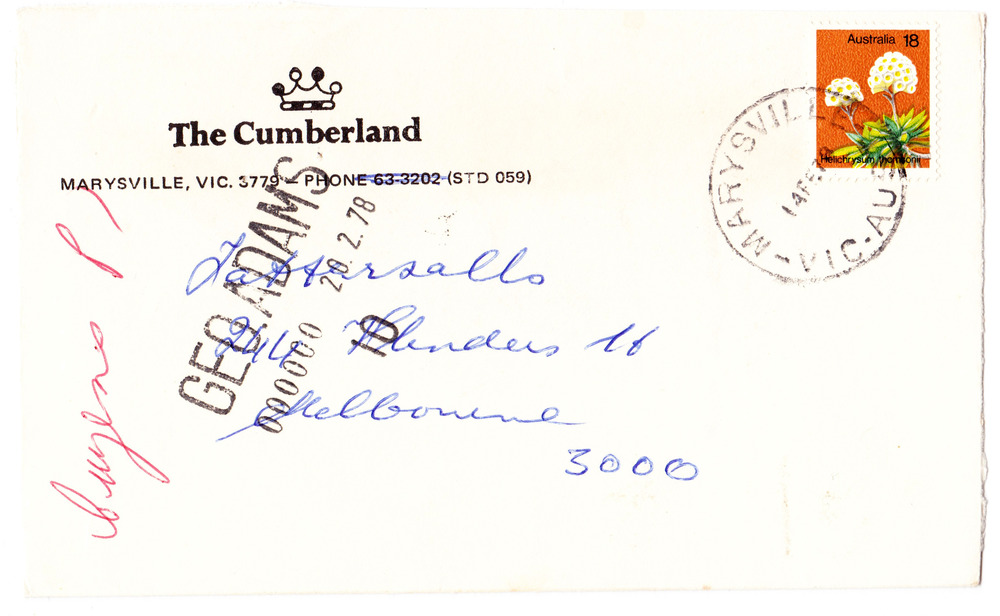 Australia 18
Helichrysum thomsonii
The Cumberland
MARYSVILLE, VIC. 3779 – PHONE 63-3202 (STD 059)
MARYSVILLE
14FE
VIC-AUS
GEO ADAMS
20 2.78
000000
10
Tattersalls
244 Flinders St
Melbourne
3000